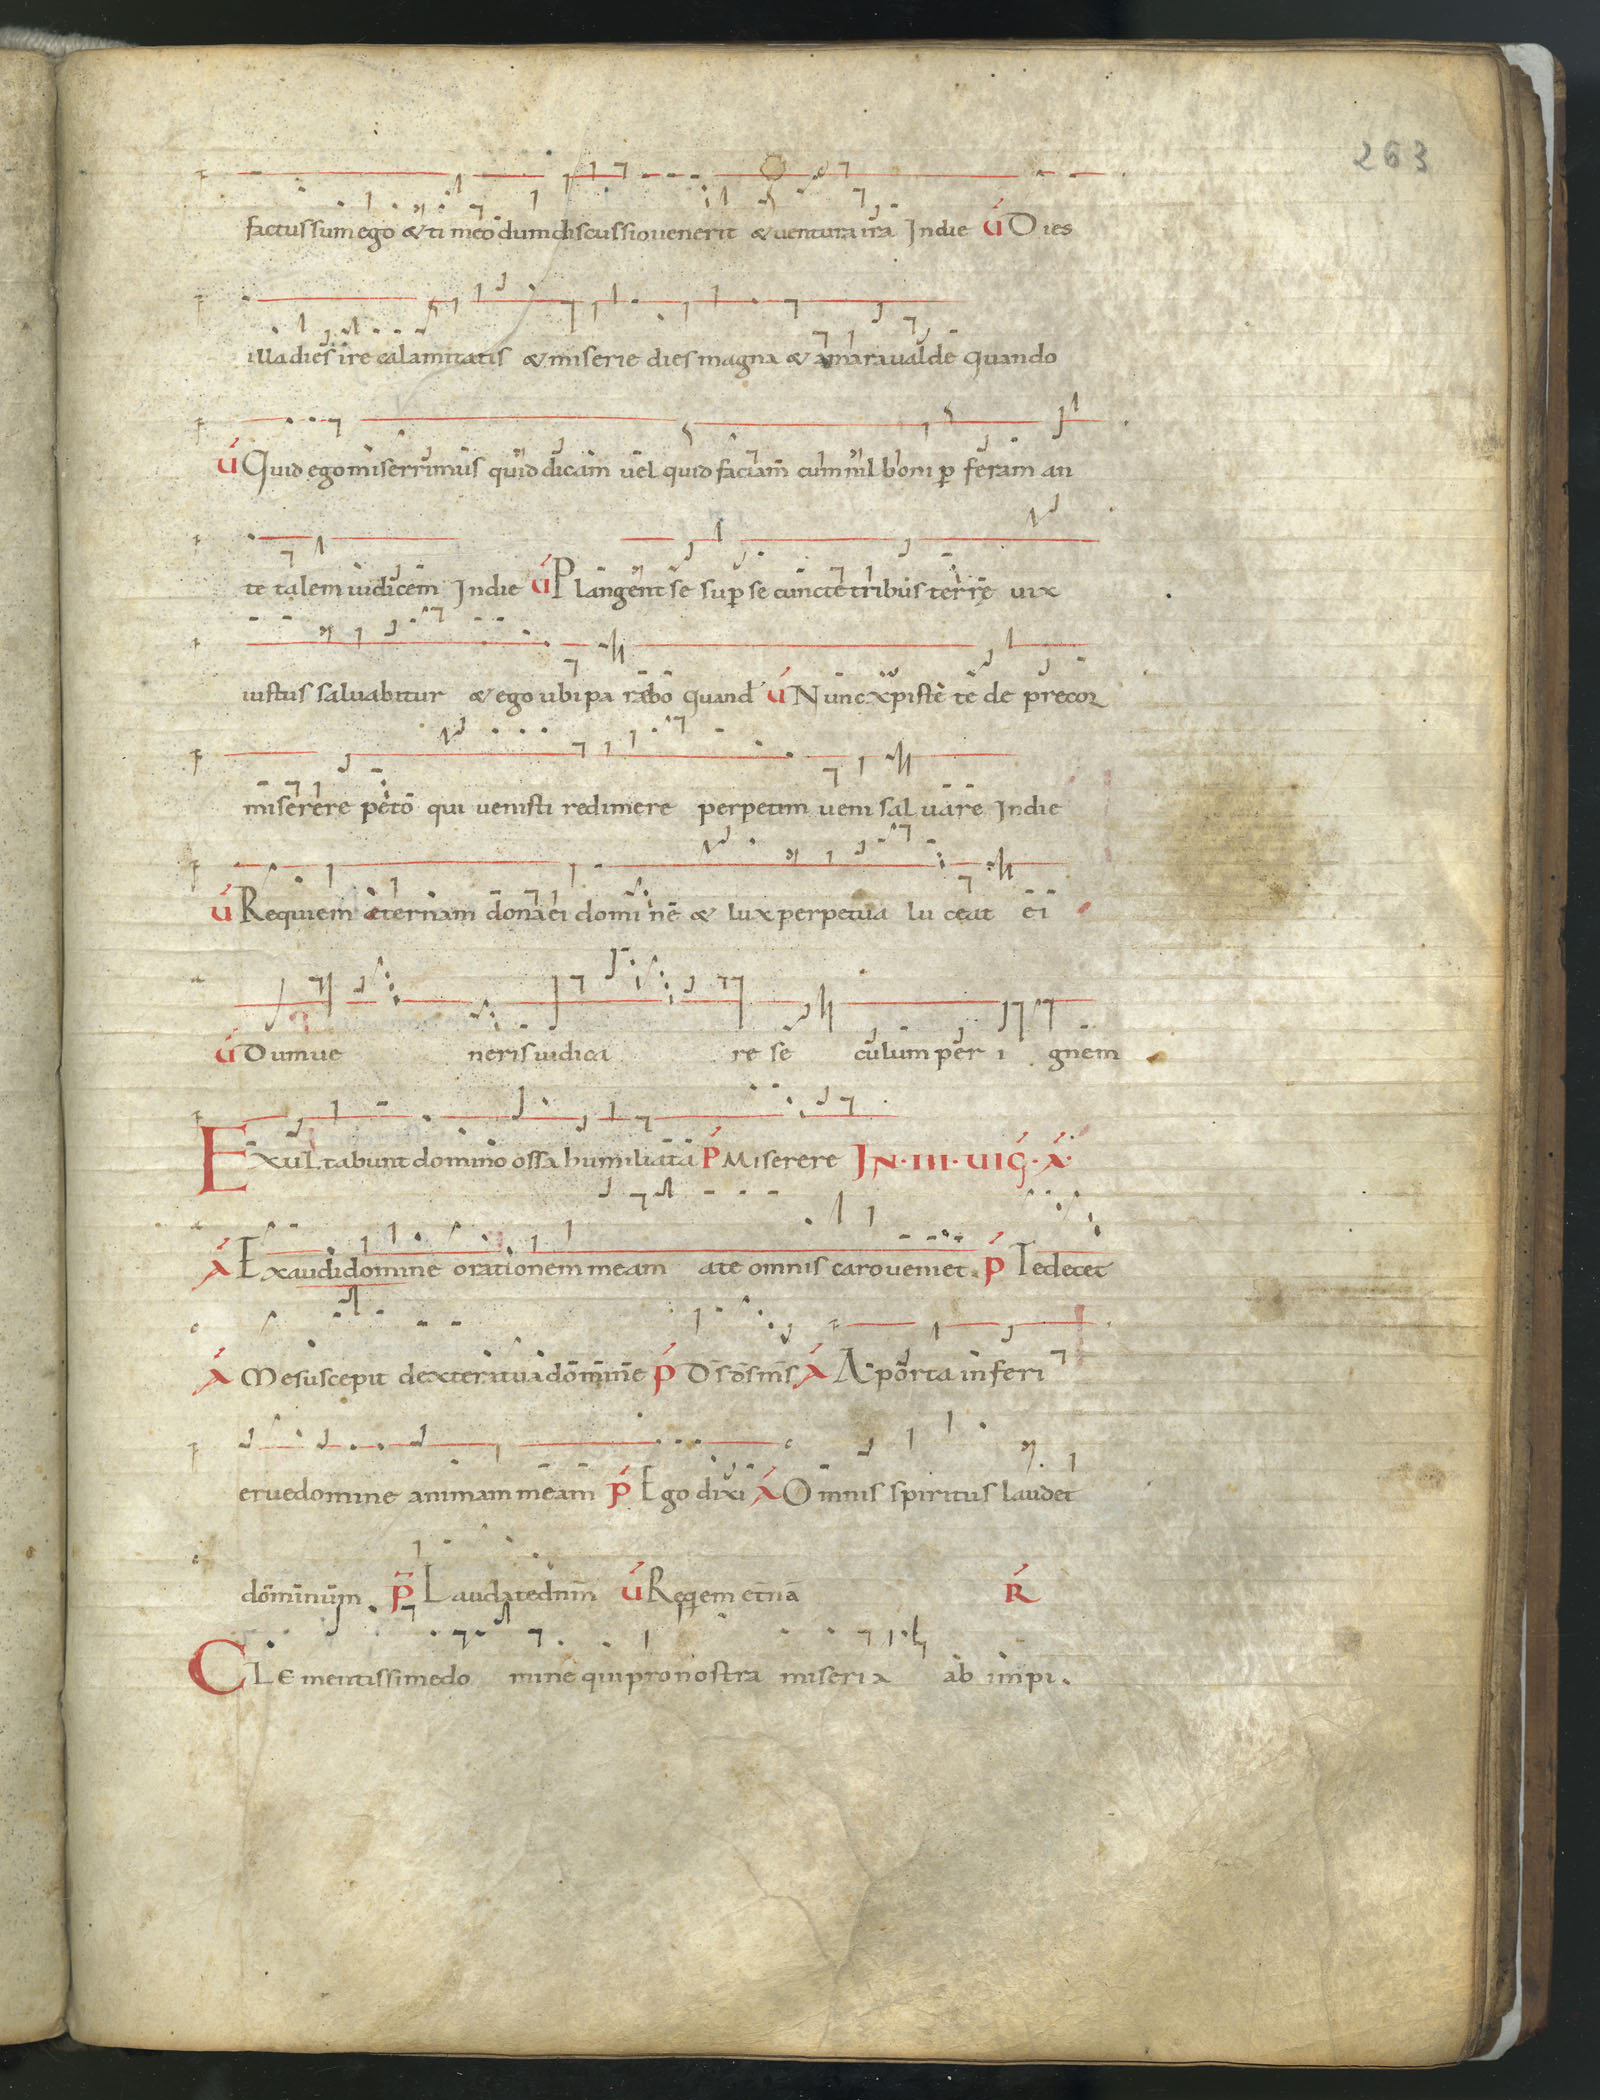 263
factus sum ego & timeo dum discussio uenerit & uentura ira Indie V Dies
illa dies ire calamitatis & miserie dies magna & amara ualde quando
V Quid ego miserrimus quid dicam uel quid faciam cum nil boni p feram an
te talem iudicem Indie V Plangent se sup se cuncte tribus terrę uix
iustus saluabitur & ego ubi parebo quand V Nunc xpiste te de precor
miserere peto qui uenisti redimere perpetim ueni saluare Indie
V Requiem eternam dona ei domine & lux perpetua luceat ei
V Dum ueneris iudicare seculum per ignem
Exultabunt domino ossa humiliata P Miserere IN · III · UIG · A ·
A Exaudi domine orationem meam ate omnis caro ueniet P Te decet
A Me suscepit dextera tua domine P Ds ds ms A A porta inferi
erue domine animam meam P Ego dixi A Omnis spiritus laudet
dominum P Laudate dnm V Reqem etnā R
Clementissime domine qui pro nostra miseria ab impi.